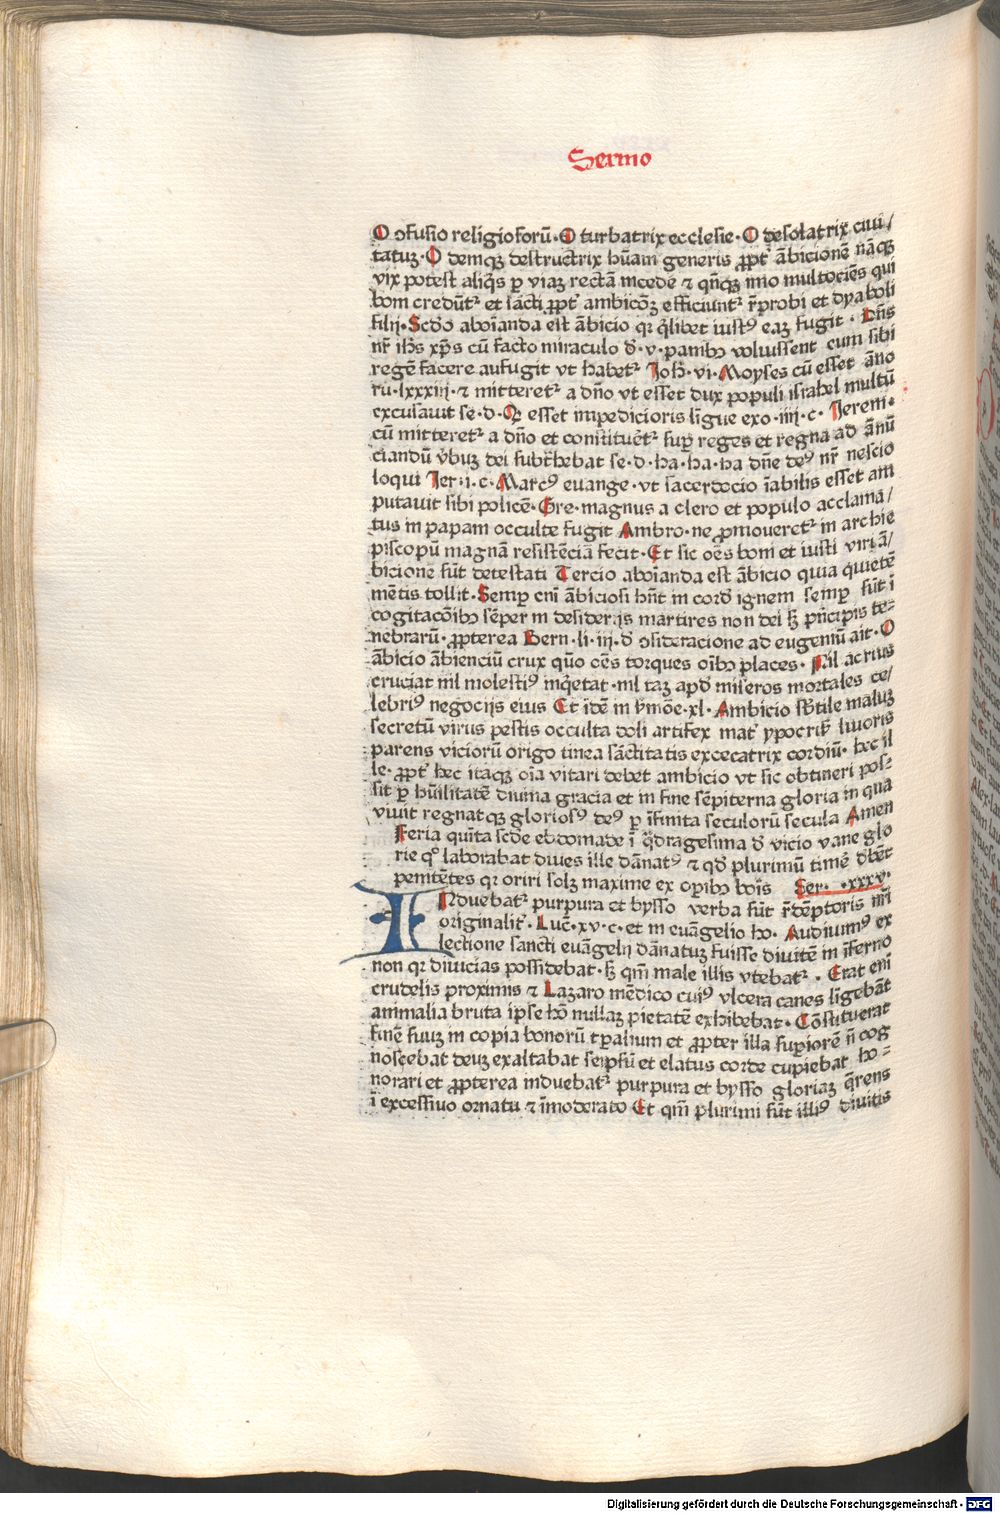 Sermo
O ɔfusio religiosorū · O turbatrix ecclesie · O desolatrix ciui/
tatuꝫ · O demqꝫ destructrix hūam generis ꝓpt̄ ābicionē nāqꝫ
vix potest aliq̄s ꝑ viaꝫ rectā incede ⁊ qn̄qꝫ īmo multociēs qui
boni credūt᷑ et sācti ꝓpt̄ ambicōꝫ efficiunt᷑ r̄probi et dyaboli
filij · Scd̄o aboīanda est ābicio qꝛ q̄libet iustꝰ eaꝫ fugit · Dn̄s
nr̄ ih̄s xp̄s cū facto miraculo d̄ · v · panibꝫ voluissent eum sibi
regē facere aufugit vt habet᷑ Joh̄ · vi · Moyses cū esset āno
rū · lxxxiij · ⁊ mitteret᷑ a dn̄o vt esset dux populi israhel multū
excusauit se · d · Qꝛ esset impedicioris ligue exo · iiij · c · Jeremi ·
cū mitteret᷑ a dn̄o et constituet᷑ suꝑ reges et regna ad ānū
ciandū v̄buꝫ dei subt̄hebat se · d · ha · ha · ha dn̄e deꝰ nr̄ nescio
loqui Jer · i · c · Marcꝰ euange · vt sacerdocio īabilis esset am
putauit sibi policē · Gre · magnus a clero et populo acclama/
tus in papam occulte fugit Ambro · ne ꝓmoueret᷑ in archie
piscopū magnā resistēciā fecit · Et sic oēs boni et iusti viri ā/
bicionē sūt detestati Tercio aboīanda est ābicio quia quietē
mētis tollit · Semꝑ eni ābiciosi hn̄t in cord̄ ignem semꝑ sūt ī
cogitacōibꝫ sēper in desiderijs martires non dei sꝫ pn̄cipis te⸗
nebrarū · ꝓpterea Bern · li · iij · d̄ ɔsideracione ad eugeniū ait · O
ābicio ābienciū crux quō oēs torques oībꝫ places · Nil acrius
cruciat nil molestiꝰ inq̄etat · nil taꝫ apd̄ miseros mortales ce/
lebriꝰ negocijs eius Et idē in s̄mōe · xl · Ambicio sb̄tile maluꝫ
secretū virus pestis occulta doli artifex mat̄ ypocrisꝭ liuoris
parens viciorū origo tinea sāctitatis excecatrix cordiū · hec il
le · ꝓpt̄ hec itaqꝫ oīa vitari debet ambicio vt sic obtineri pos⸗
sit ꝑ hūilitatē diuina gracia et in fine sēpiterna gloria in qua
viuit regnatqꝫ gloriosꝰ deꝰ ꝑ īfinita seculorū secula Amen
Feria quīta scd̄e ebdomade ī q̄dragesima d̄ vicio vane glo
rie qº laborabat diues ille dānatꝰ ⁊ qd̄ plurimū timē d̄bēt
penitētes qꝛ oriri solꝫ maxime ex oꝑibꝫ boīs Ser · xxxv ·
INduebat᷑ purpura et bysso verba sūt r̄dēptoris nr̄i
originalit̄ · Luc̄ · xv · c · et in euāgelio ho · Audiuimꝰ ex
lectione sancti euāgelij dānatuꝫ fuisse diuitē in īferno
non qꝛ diuicias possidebat · sꝫ qm̄ male illis vtebat᷑ · Erat eni
crudelis proximis ⁊ Lazaro mēdico cuiꝰ vlcera canes ligebāt
animalia bruta ipse hō nullaꝫ pietatē exhibebat · Cōstituerat
finē suuꝫ in copia bonorū tꝑalium et ꝓpter illa suꝑiorē n̄ cog
noscebat deuꝫ exaltabat seipsū et elatus corde cupiebat ho⸗
norari et ꝓpterea induebat᷑ purpura et bysso gloriaꝫ q̄rens
ī excessiuo ornatu ⁊ īmoderato Et qm̄ plurimi sūt illiꝰ diuitis
Digitalisierung gefördert durch die Deutsche Forschungsgemeinschaft - DFG